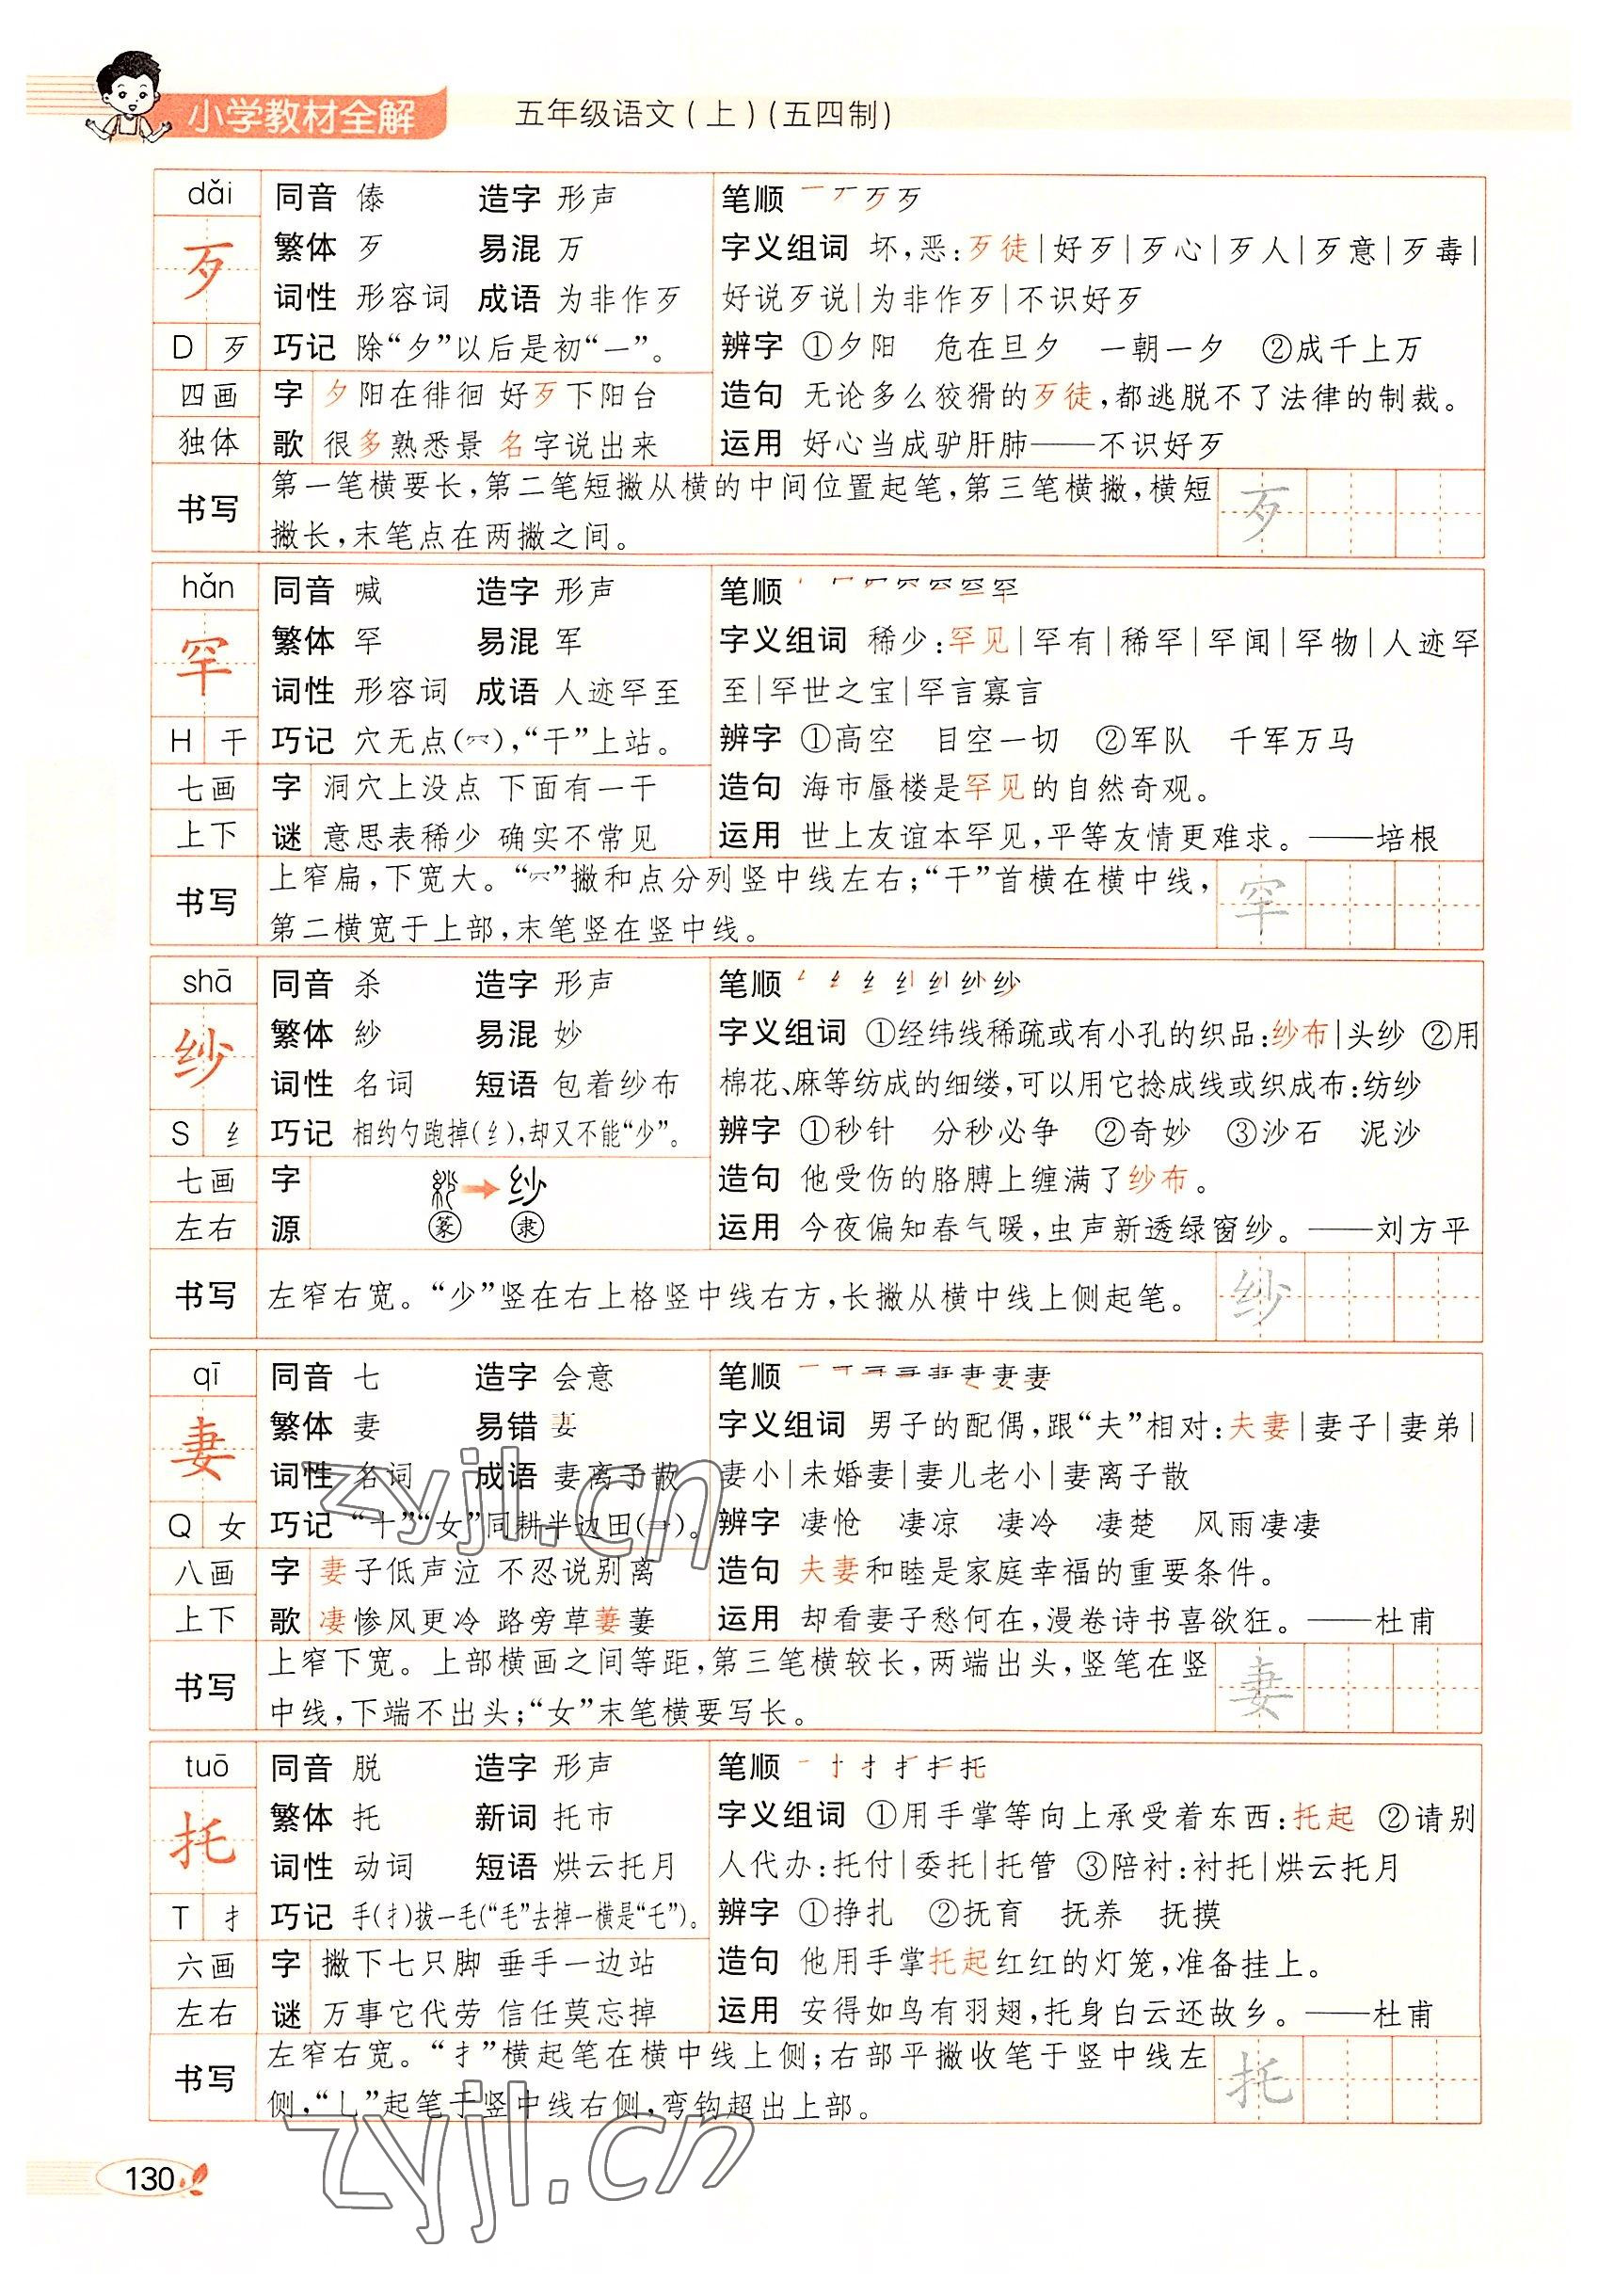 小学教材全解 五年级语文(上)(五四制)
dǎi 同音 傣 造字 形声 笔顺
歹 繁体 歹 易混 万 字义组词 坏,恶:歹徒|好歹|歹心|歹人|歹意|歹毒|
词性 形容词 成语 为非作歹 好说歹说|为非作歹|不识好歹
D 歹 巧记 除“夕”以后是初“一”。 辨字 ①夕阳 危在旦夕 一朝一夕 ②成千上万
四画 字 夕阳在徘徊 好歹下阳台 造句 无论多么狡猾的歹徒,都逃脱不了法律的制裁。
独体 歌 很多熟悉景 名字说出来 运用 好心当成驴肝肺——不识好歹
书写 第一笔横要长,第二笔短撇从横的中间位置起笔,第三笔横撇,横短
撇长,末笔点在两撇之间。 歹
hǎn 同音 喊 造字 形声 笔顺
罕 繁体 罕 易混 军 字义组词 稀少:罕见|罕有|稀罕|罕闻|罕物|人迹罕
词性 形容词 成语 人迹罕至 至|罕世之宝|罕言寡言
H 干 巧记 穴无点(),“干”上站。 辨字 ①高空 目空一切 ②军队 千军万马
七画 字 洞穴上没点 下面有一干 造句 海市蜃楼是罕见的自然奇观。
上下 谜 意思表稀少 确实不常见 运用 世上友谊本罕见,平等友情更难求。——培根
书写 上窄扁,下宽大。“”撇和点分列竖中线左右;“干”首横在横中线,
第二横宽于上部,末笔竖在竖中线。 罕
shā 同音 杀 造字 形声 笔顺
纱 繁体 紗 易混 妙 字义组词 ①经纬线稀疏或有小孔的织品:纱布|头纱 ②用
词性 名词 短语 包着纱布 棉花、麻等纺成的细缕,可以用它捻成线或织成布:纺纱
S 纟 巧记 相约勺跑掉(纟),却又不能“少”。 辨字 ①秒针 分秒必争 ②奇妙 ③沙石 泥沙
七画 字 造句 他受伤的胳膊上缠满了纱布。
左右 源 篆 隶 运用 今夜偏知春气暖,虫声新透绿窗纱。——刘方平
书写 左窄右宽。“少”竖在右上格竖中线右方,长撇从横中线上侧起笔。 纱
qī 同音 七 造字 会意 笔顺
妻 繁体 妻 易错 字义组词 男子的配偶,跟“夫”相对:夫妻|妻子|妻弟|
词性 名词 成语 妻离子散 妻小|未婚妻|妻儿老小|妻离子散
Q 女 巧记 “十”“女”同耕半边田()。 辨字 凄怆 凄凉 凄冷 凄楚 风雨凄凄
八画 字 妻子低声泣 不忍说别离 造句 夫妻和睦是家庭幸福的重要条件。
上下 歌 凄惨风更冷 路旁草萋萋 运用 却看妻子愁何在,漫卷诗书喜欲狂。——杜甫
书写 上窄下宽。上部横画之间等距,第三笔横较长,两端出头,竖笔在竖
中线,下端不出头;“女”末笔横要写长。 妻
tuō 同音 脱 造字 形声 笔顺
托 繁体 托 新词 托市 字义组词 ①用手掌等向上承受着东西:托起 ②请别
词性 动词 短语 烘云托月 人代办:托付|委托|托管 ③陪衬:衬托|烘云托月
T 扌 巧记 手(扌)拔一毛(“毛”去掉一横是“乇”)。 辨字 ①挣扎 ②抚育 抚养 抚摸
六画 字 撇下七只脚 垂手一边站 造句 他用手掌托起红红的灯笼,准备挂上。
左右 谜 万事它代劳 信任莫忘掉 运用 安得如鸟有羽翅,托身白云还故乡。——杜甫
书写 左窄右宽。“扌”横起笔在横中线上侧;右部平撇收笔于竖中线左
侧,“乚”起笔于竖中线右侧,弯钩超出上部。 托
zyjl.cn
zyjl.cn
130